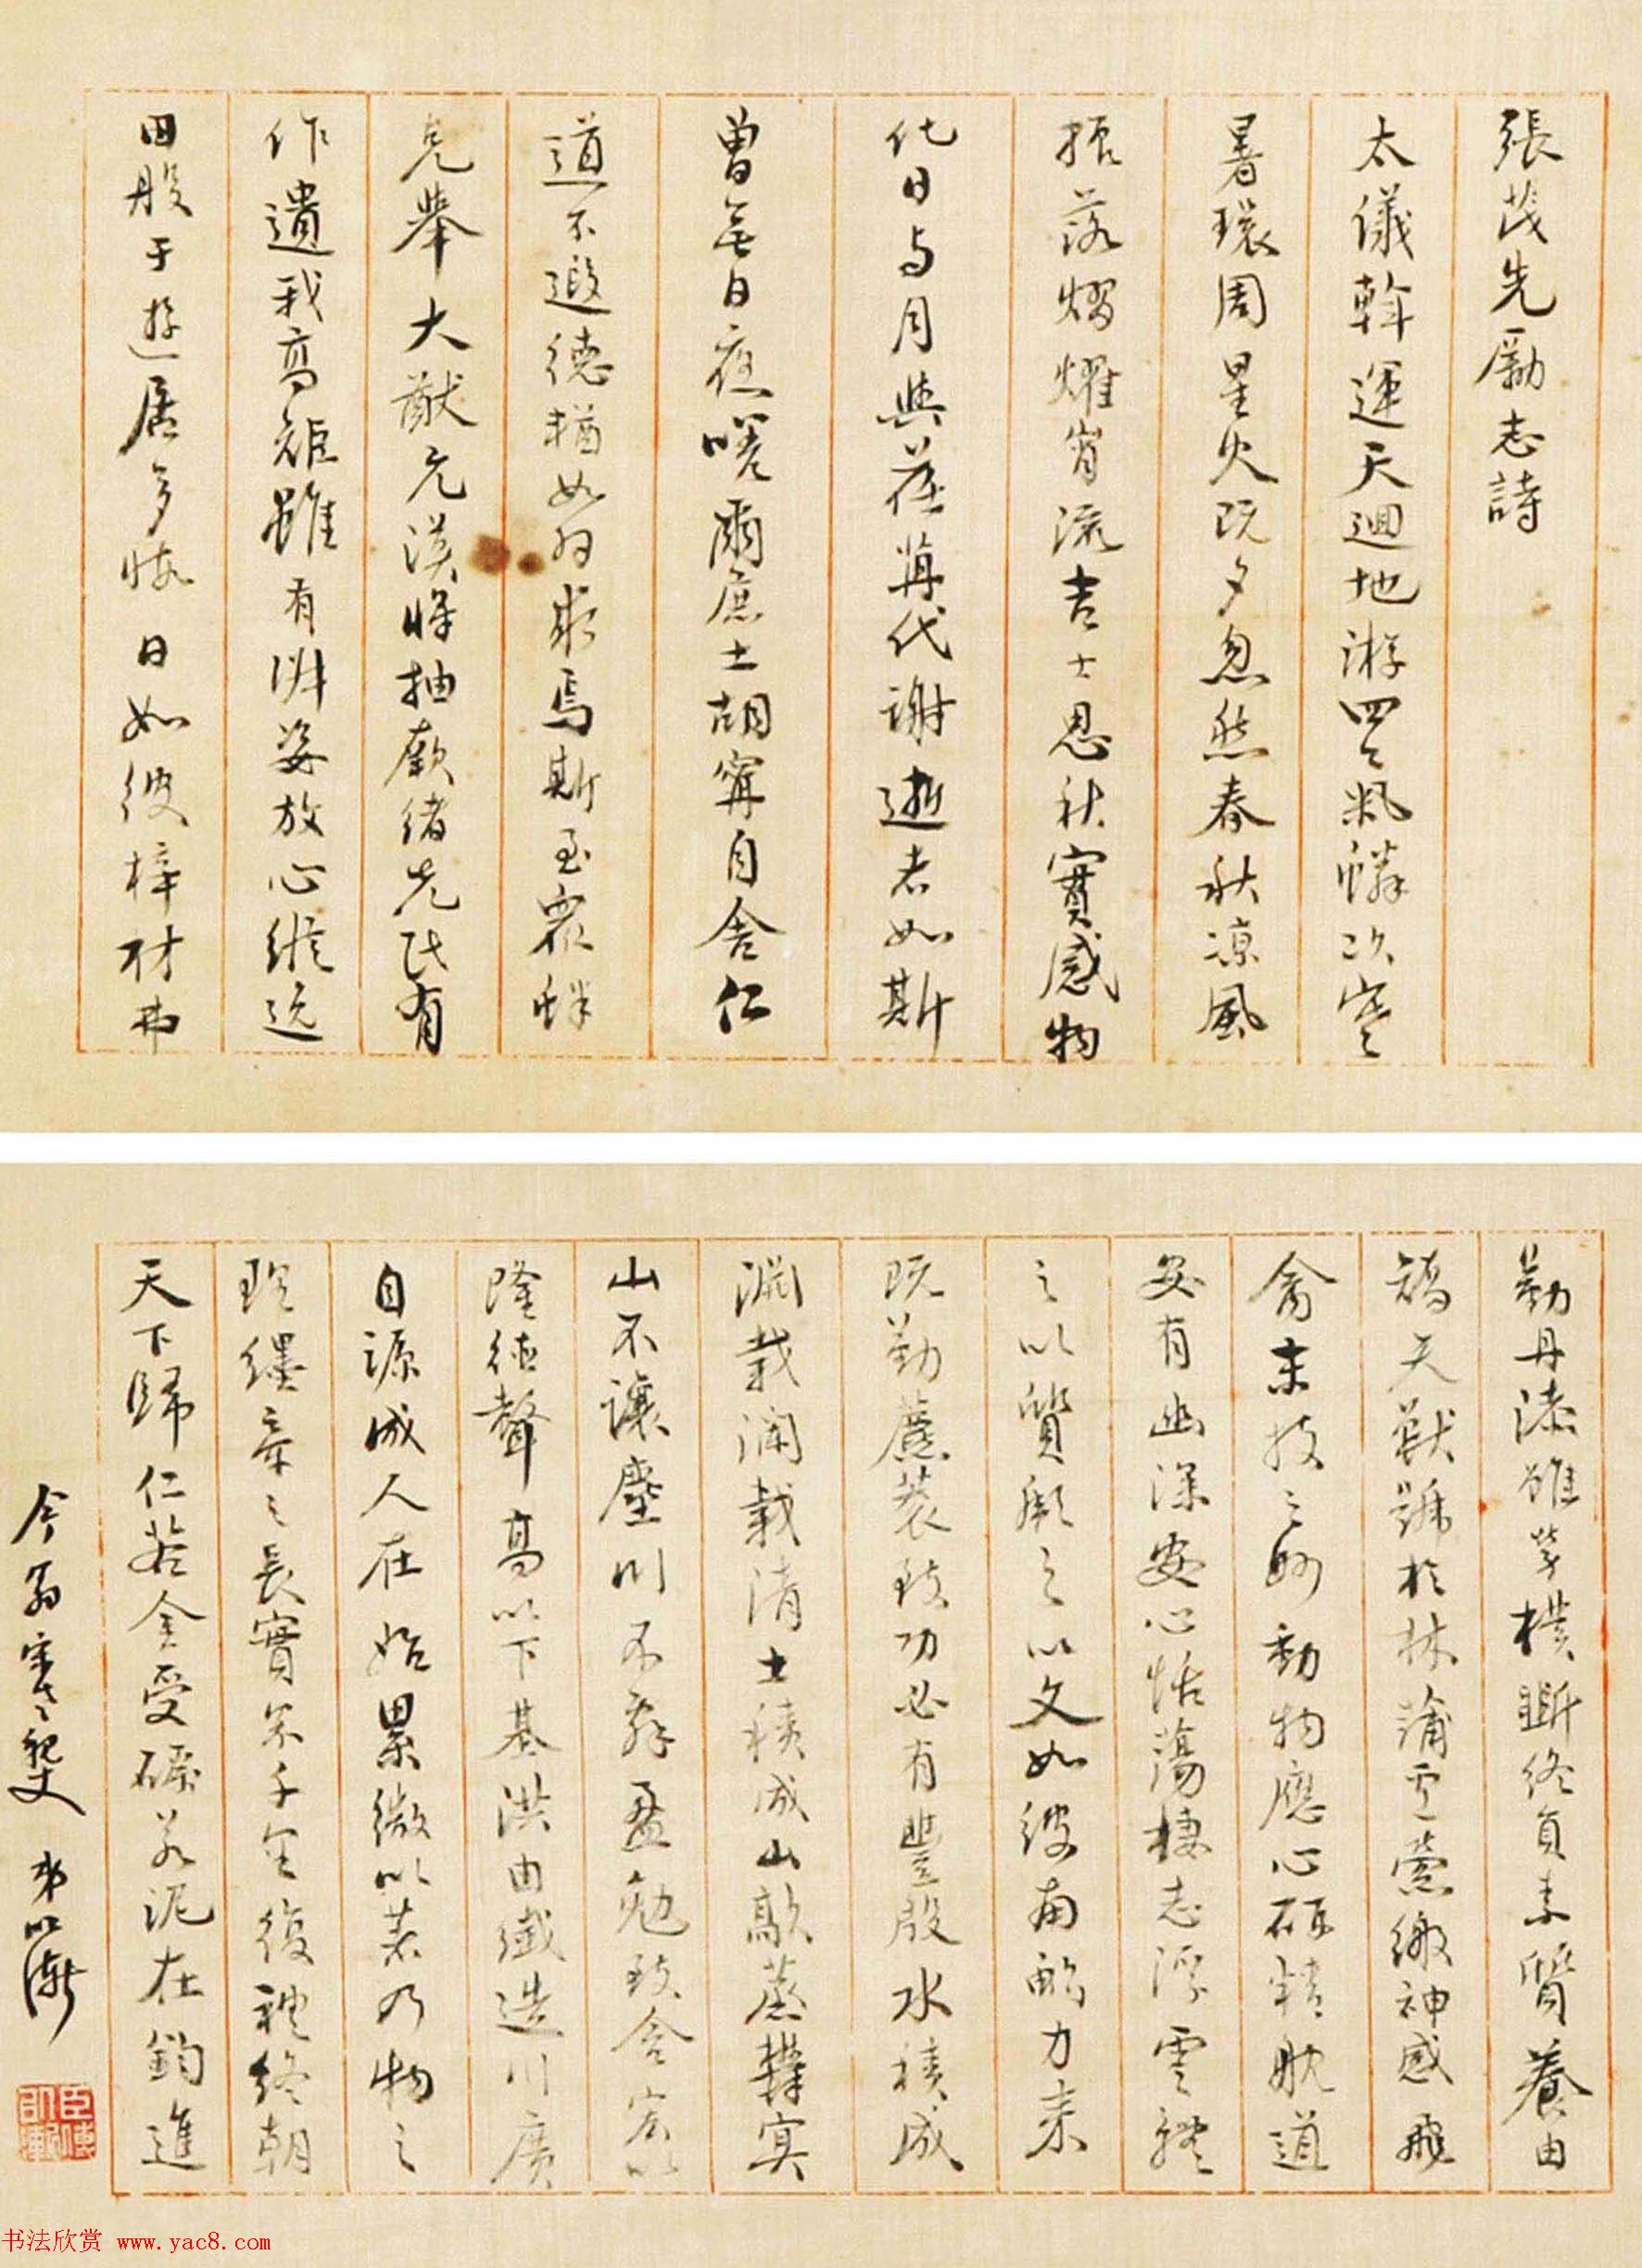 張茂先勵志詩
太儀斡運天迴地游四氣鱗次寒
暑環周星火既夕忽焉春秋凉風
振落熠燿宵流吉士思秋寔感物
化日与月與荏苒代謝逝者如斯
曾無日夜嗟爾庶士胡寧自舍仁
道不遐德輶如羽求焉斯至眾鮮
克舉大猷玄漠將抽厥緒先民有
作遺我高矩雖有淑姿放心縱逸
田般于遊居多暇日如彼梓材弗
勤丹漆雖勞樸斲終負素質養由
矯矢獸號於林蒲盧縈繳神感飛
禽末技之妙動物應心研精耽道
安有幽深安心恬蕩棲志浮雲體
之以質彪之以文如彼南畝力耒
既勤藨蓘致功必有豐殷水積成
淵載瀾載清土積成山歊蒸鬱冥
山不讓塵川不辭盈勉致含宏以
隆德聲高以下基洪由纖造川廣
自源成人在始累微以著乃物之
理纆牽之長實累千里復禮終朝
天下歸仁若金受礪若泥在鈞進
弟以漸
书法欣赏 www.yac8.com